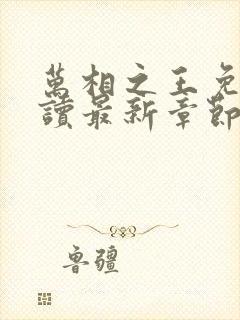 萬相之王免
讀最新章節
魯疆